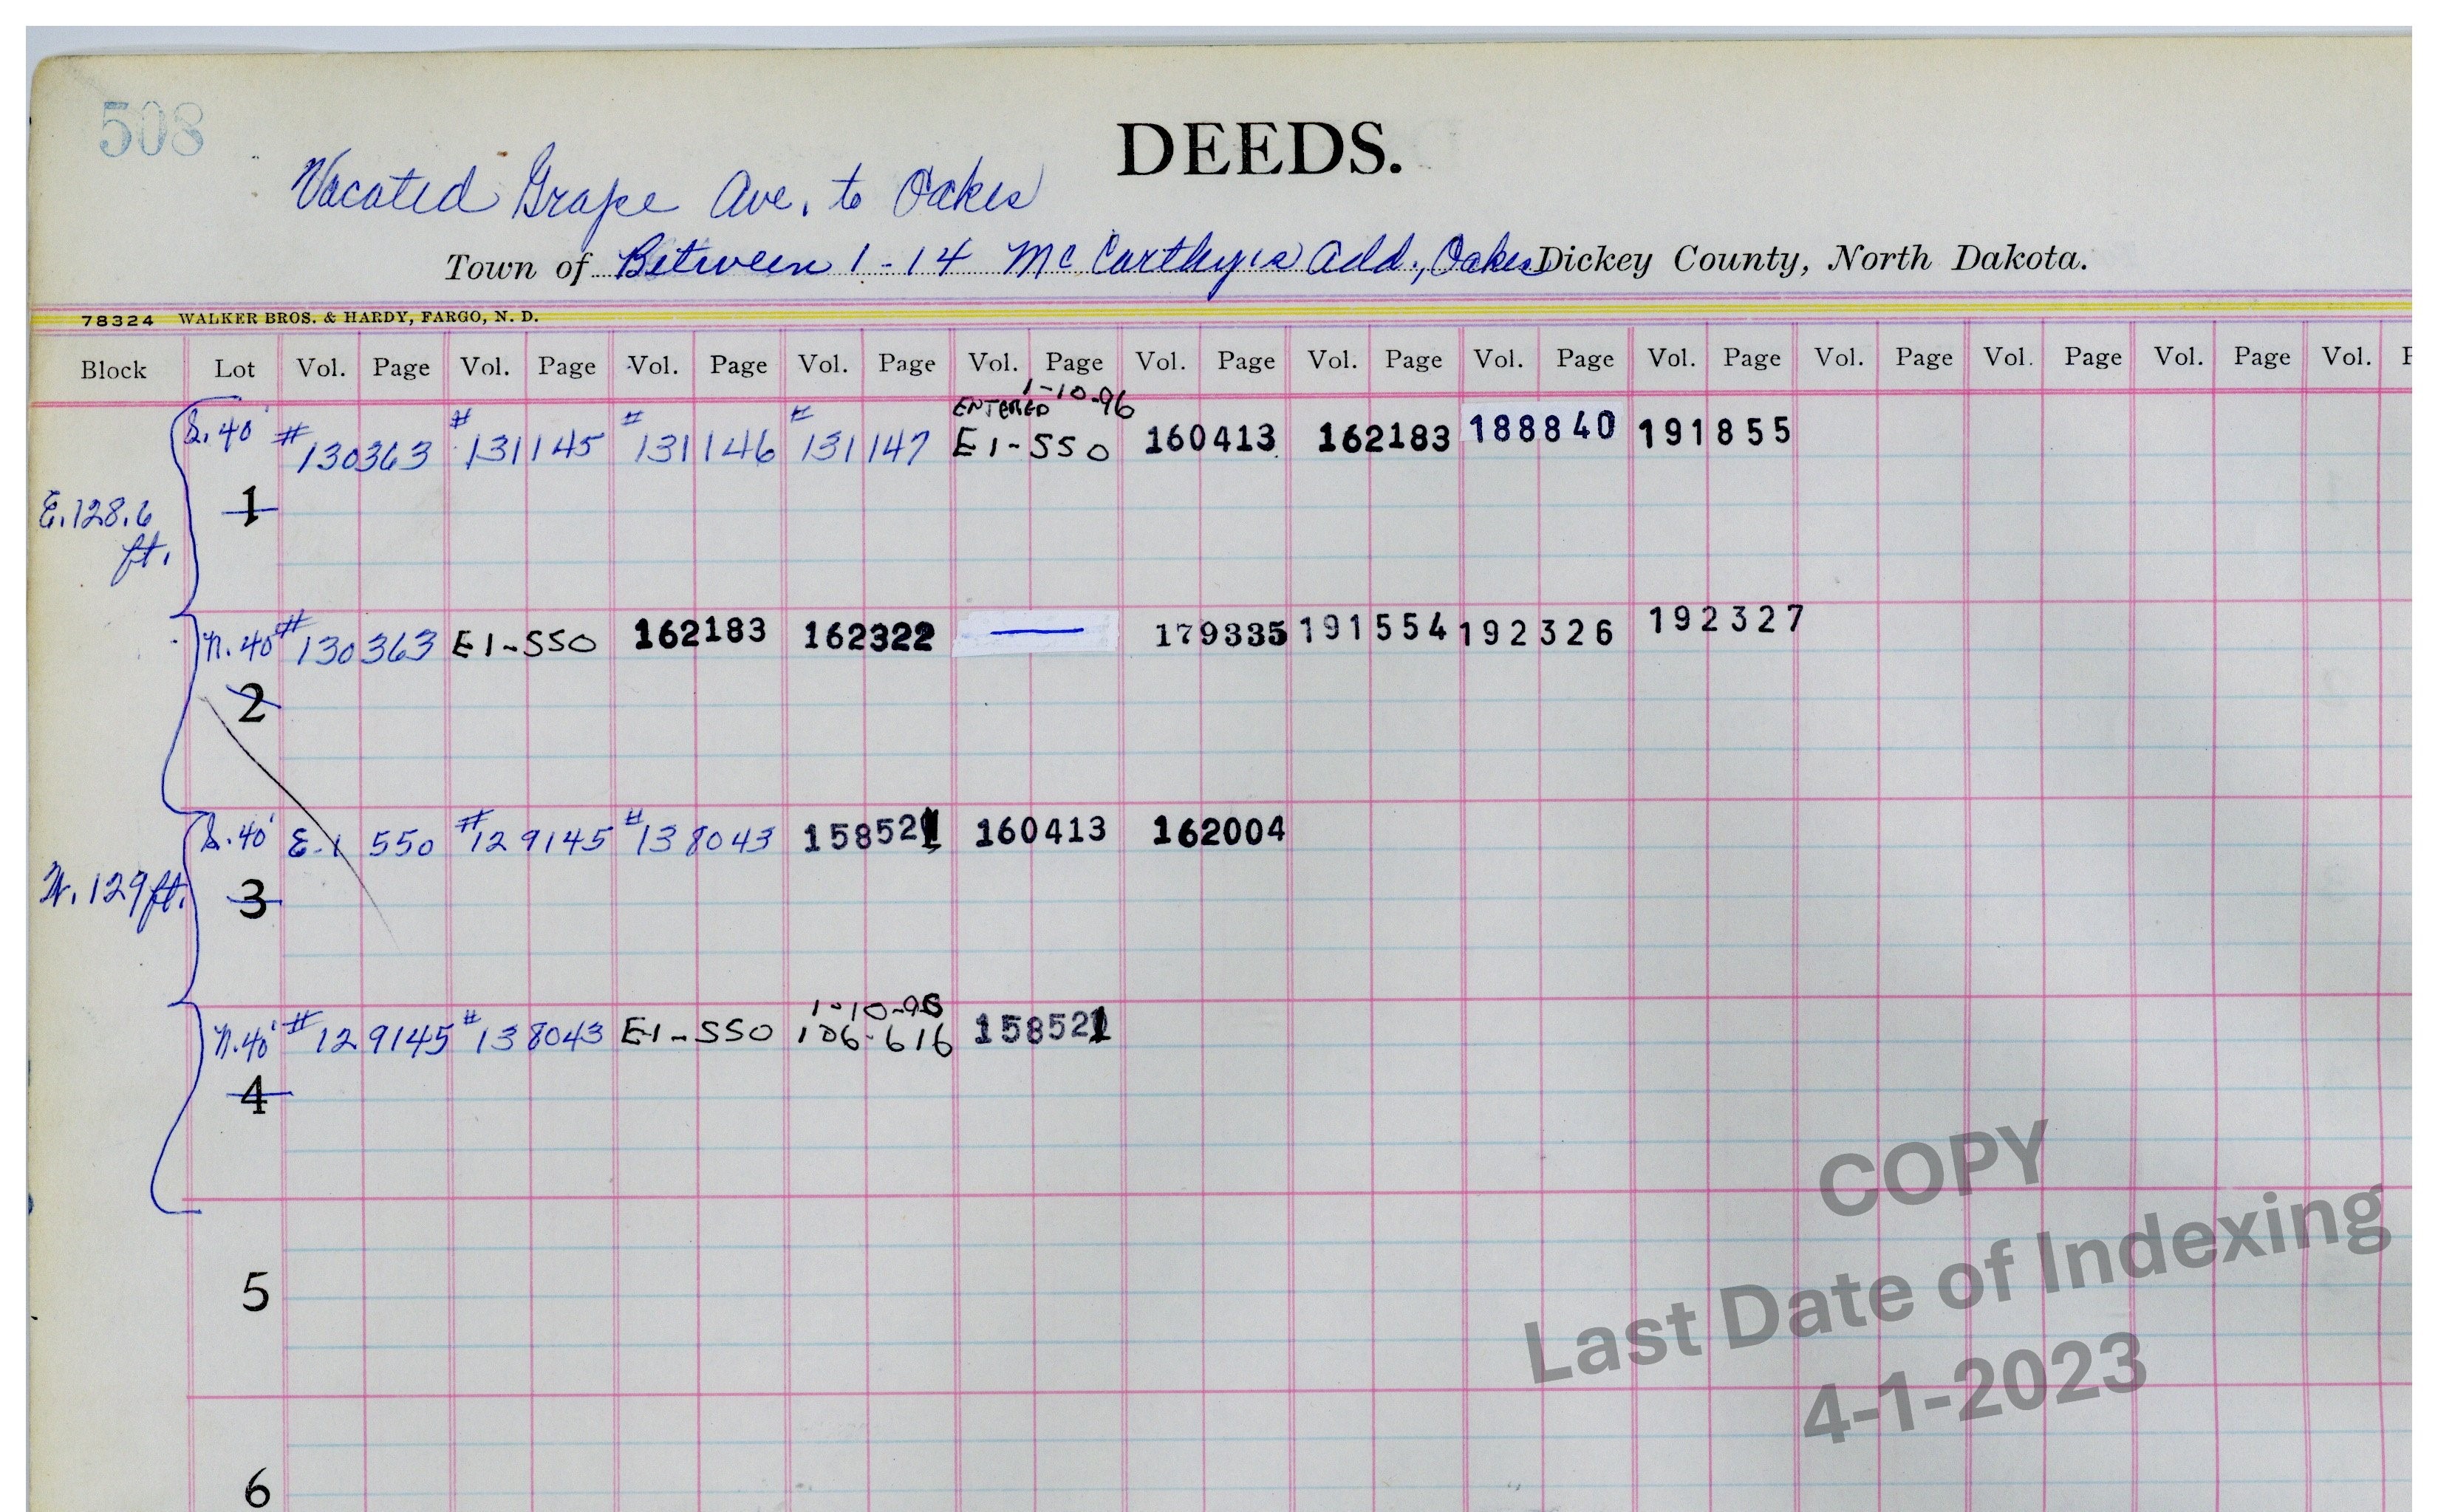 508
DEEDS.
Vacated Grape Ave. to Oakes
Town of Between 1-14 McCarthy's Add., Oakes Dickey County, North Dakota.
78324 WALKER BROS. & HARDY, FARGO, N. D.
Block Lot Vol. Page Vol. Page Vol. Page Vol. Page Vol. Page Vol. Page Vol. Page Vol. Page Vol. Page Vol. Page Vol. Page Vol. Page Vol. P
ENTERED 1-10-96
S. 40' #130363 #131145 #131146 #131147 E1-550 160413 162183 188840 191855
E. 128.6 ft.
1
N. 40' #130363 E1-550 162183 162322 — 179335 191554 192326 192327
2
S. 40' E-1 550 #129145 #138043 158521 160413 162004
W. 129 ft.
3
1-10-96
N. 40' #129145 #138043 E1-550 106-616 158521
4
5
6
COPY
Last Date of Indexing
4-1-2023